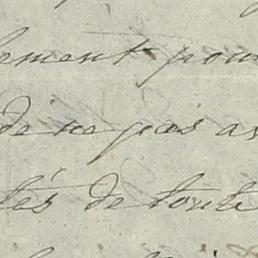 ement pour
de ne pas a
tés de toute